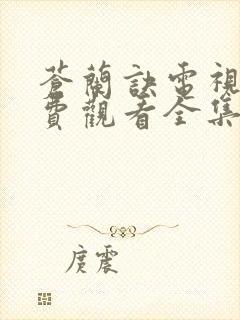 蒼蘭訣電視
費觀看全集
庹震